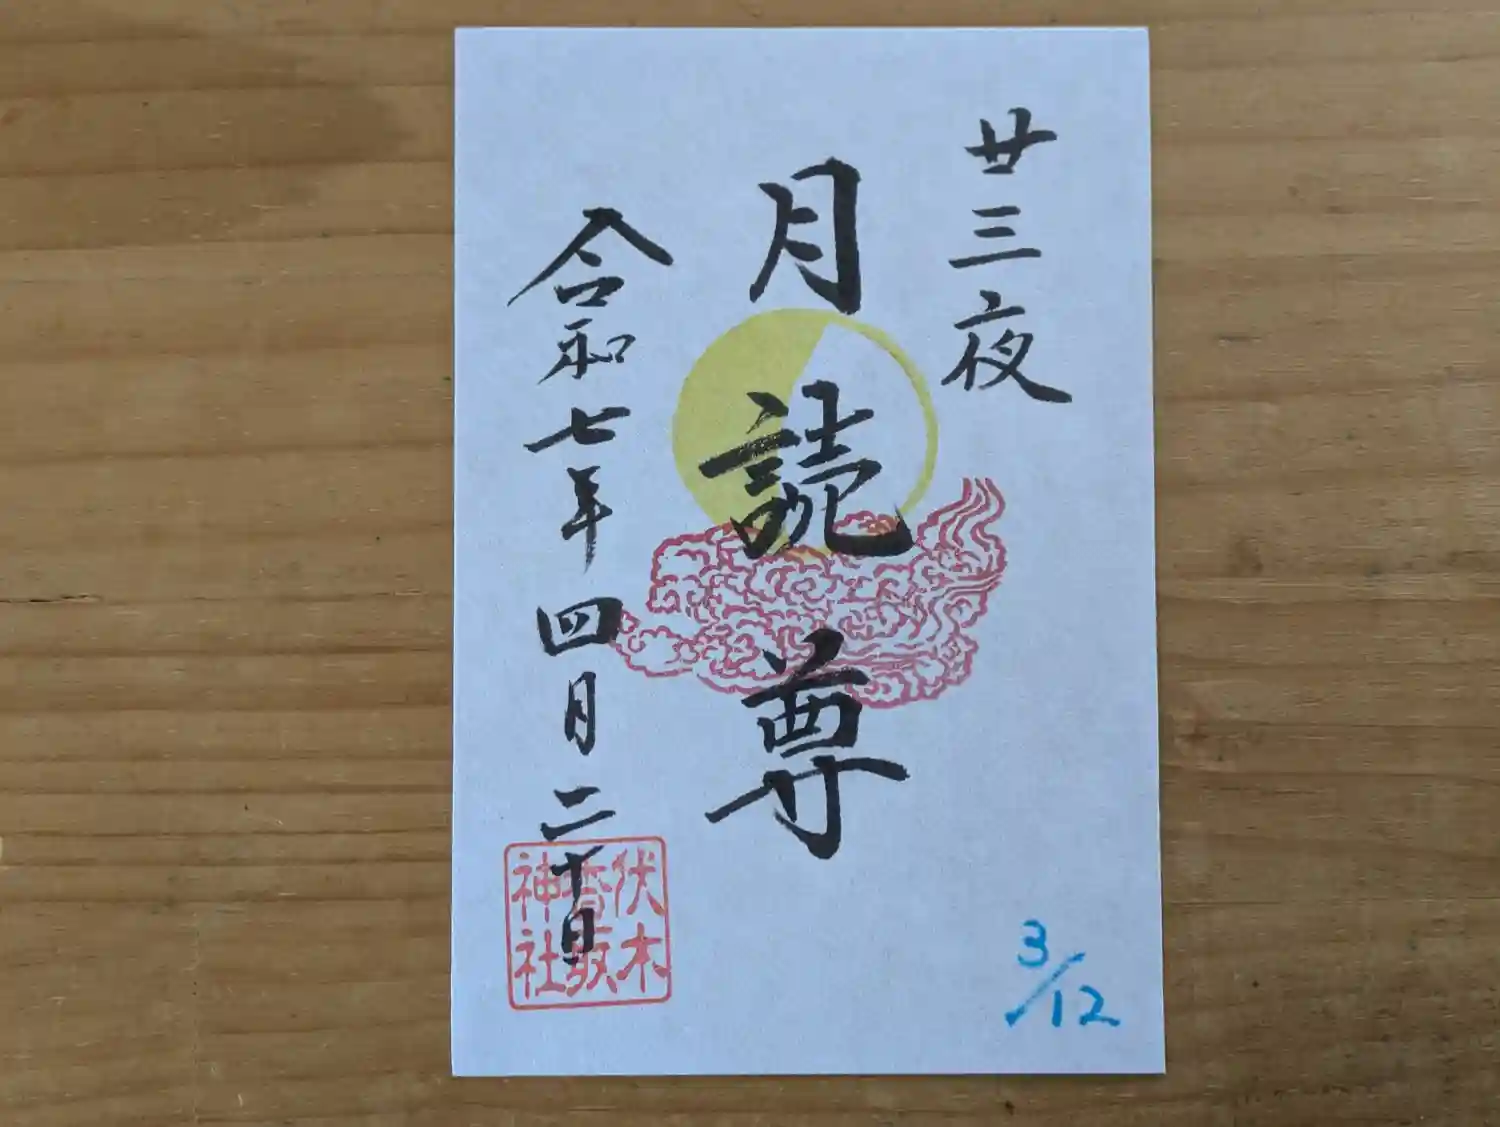 廿三夜
月読尊
令和七年四月二十日
伏木
香取
神社
3/12